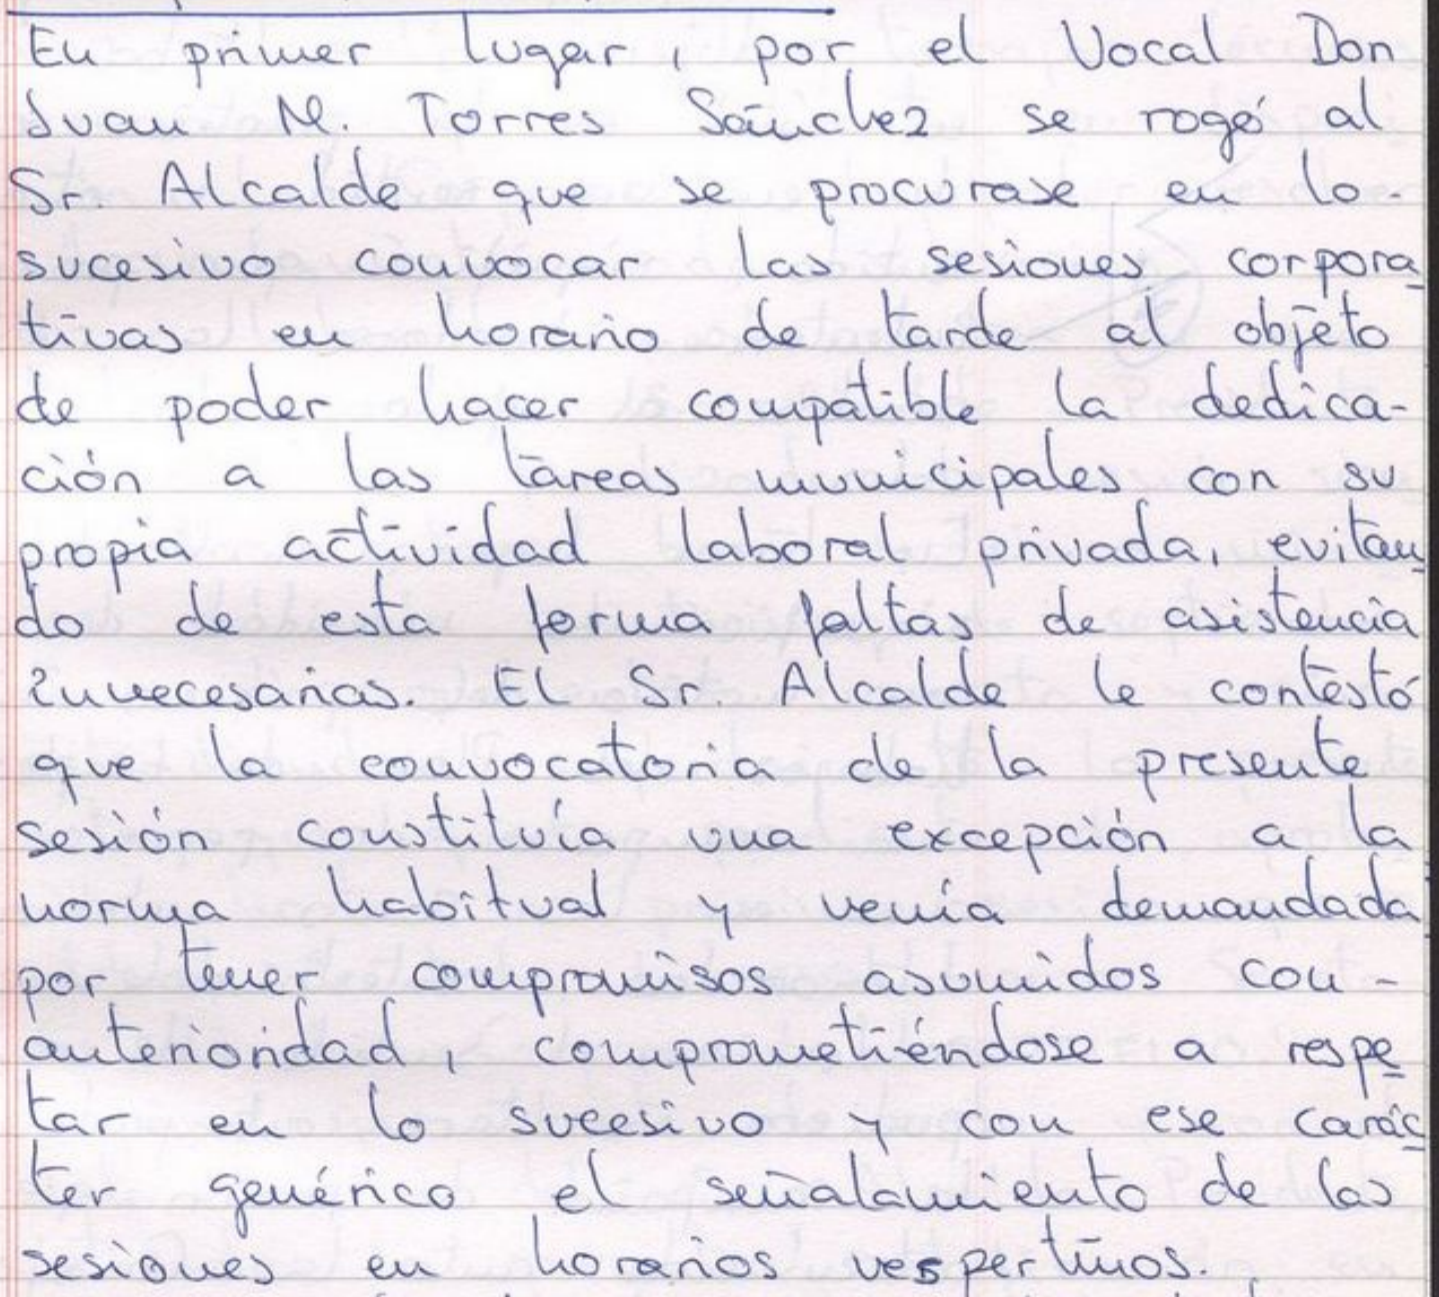 En primer lugar, por el Vocal Don
Juan M. Torres Sánchez se rogó al
Sr. Alcalde que se procurase en lo-
sucesivo convocar las sesiones corpora-
tivas en horario de tarde al objeto
de poder hacer compatible la dedica-
ción a las tareas municipales con su
propia actividad laboral privada, evitan-
do de esta forma faltas de asistencia
innecesarias. El Sr. Alcalde le contestó
que la convocatoria de la presente
sesión constituía una excepción a la
norma habitual y venía demandada
por tener compromisos asumidos con-
anterioridad, comprometiéndose a respe-
tar en lo sucesivo y con ese carác-
ter genérico el señalamiento de las
sesiones en horarios vespertinos.